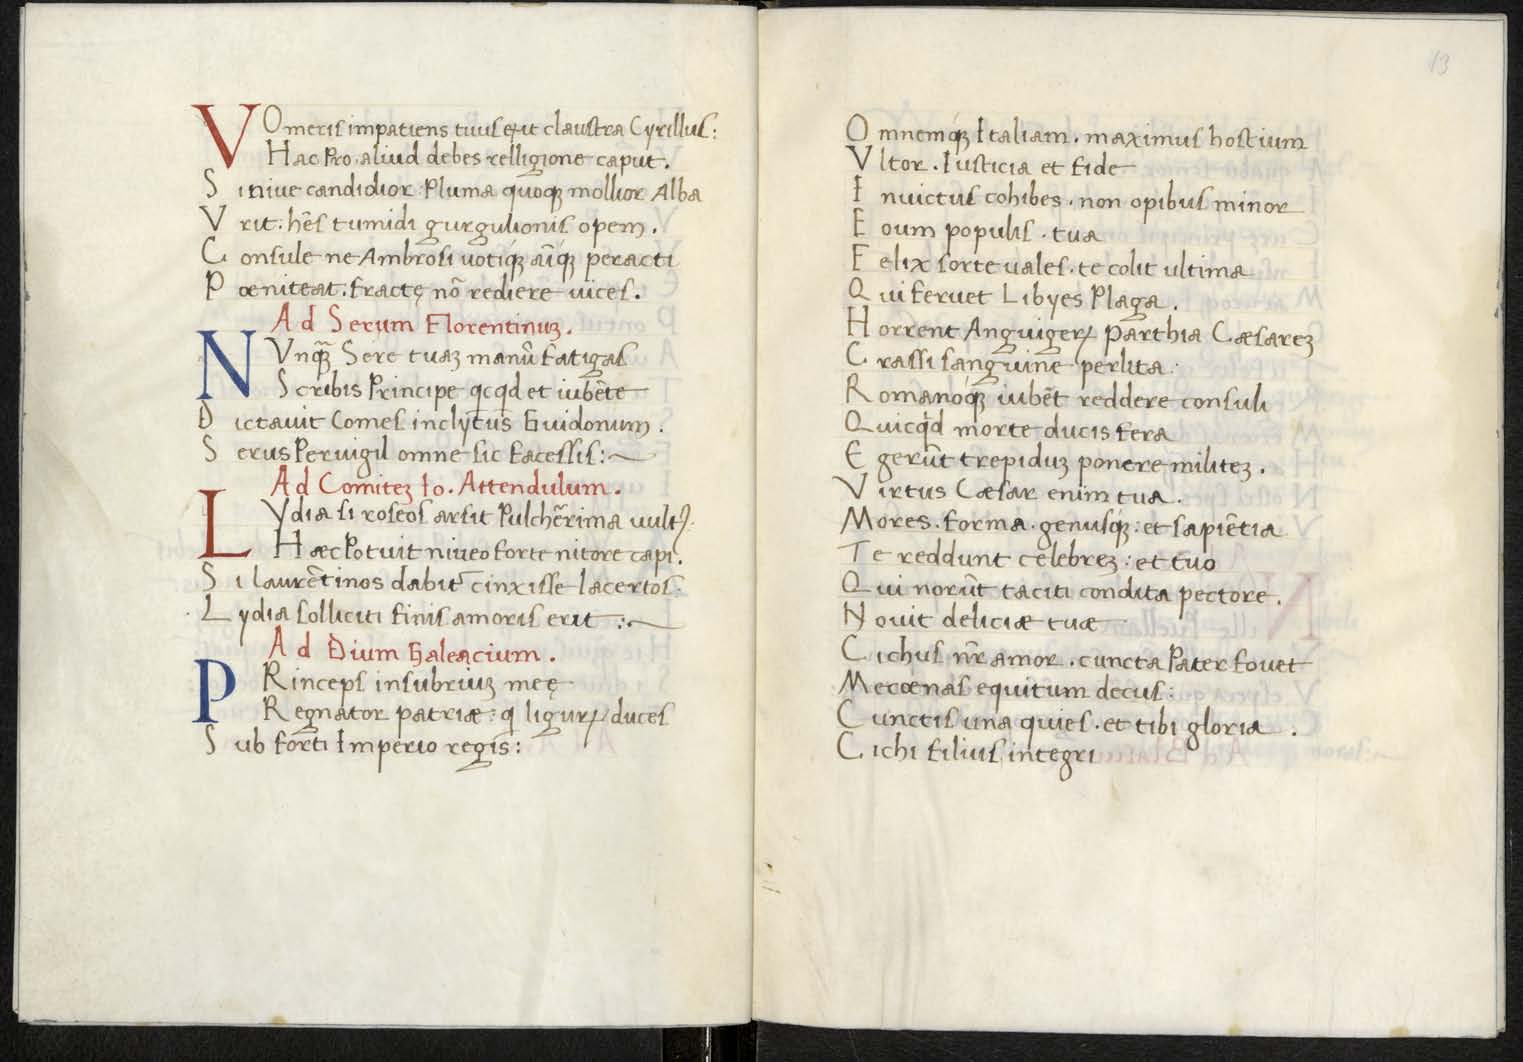 VOmeris impatiens tuus exit claustra Cyrillus:
Hac pro aliud debes relligione caput.
Si niue candidior Pluma quoq́ʒ mollior Alba
Vrit: hẽs tumidi gurgulionis opem.
Consule ne Ambrosi uotiq́ʒ aĩq́ʒ peracti
Pœniteat. fractę nõ rediere uices.
Ad Serum Florentinuʒ.
NVnq̃ʒ Sere tuaʒ manũ fatigas
Scribis Principe qcqd et iubẽte
Dictauit Comes inclytus Guidonum.
Serus Peruigil omne sic facessis:~
Ad Comiteʒ Io. Attendulum.
LYdia si roseos arsit Pulcherima uultꝰ.
Hæc Potuit niueo forte nitore capi.
Si laurẽtinos dabit̃ cinxisse lacertos.
Lydia solliciti finis amoris erit :~
Ad Dium Galeacium.
PRinceps insubriuʒ meę
Regnator patriæ: q̇ liguꝝ duces
Sub forti Imperio regis:
13
Omnemq́ʒ Italiam. maximus hostium
Vltor. Iusticia et fide
Inuictus cohibes. non opibus minor
Eoum populis. tua
Felix sorte uales. te colit ultima
Qui feruet Libyes Plaga.
Horrent Anguigeꝝ Parthia Cæsareʒ
Crassi sanguine perlita.
Romanoq́ʒ iubẽt reddere consuli
Quicq̇d morte ducis fera
Egerũt trepiduʒ ponere militeʒ.
Virtus Cæsar enim tua.
Mores. forma. genusq́ʒ: et sapiẽtia
Te reddunt celebreʒ: et tuo
Qui norũt taciti condita pectore.
Nouit deliciæ tuæ
Cichus nr̃ amor. cuncta Pater fouet
Mecœnas equitum decus:
Cunctis una quies. et tibi gloria.
Cichi filius integri